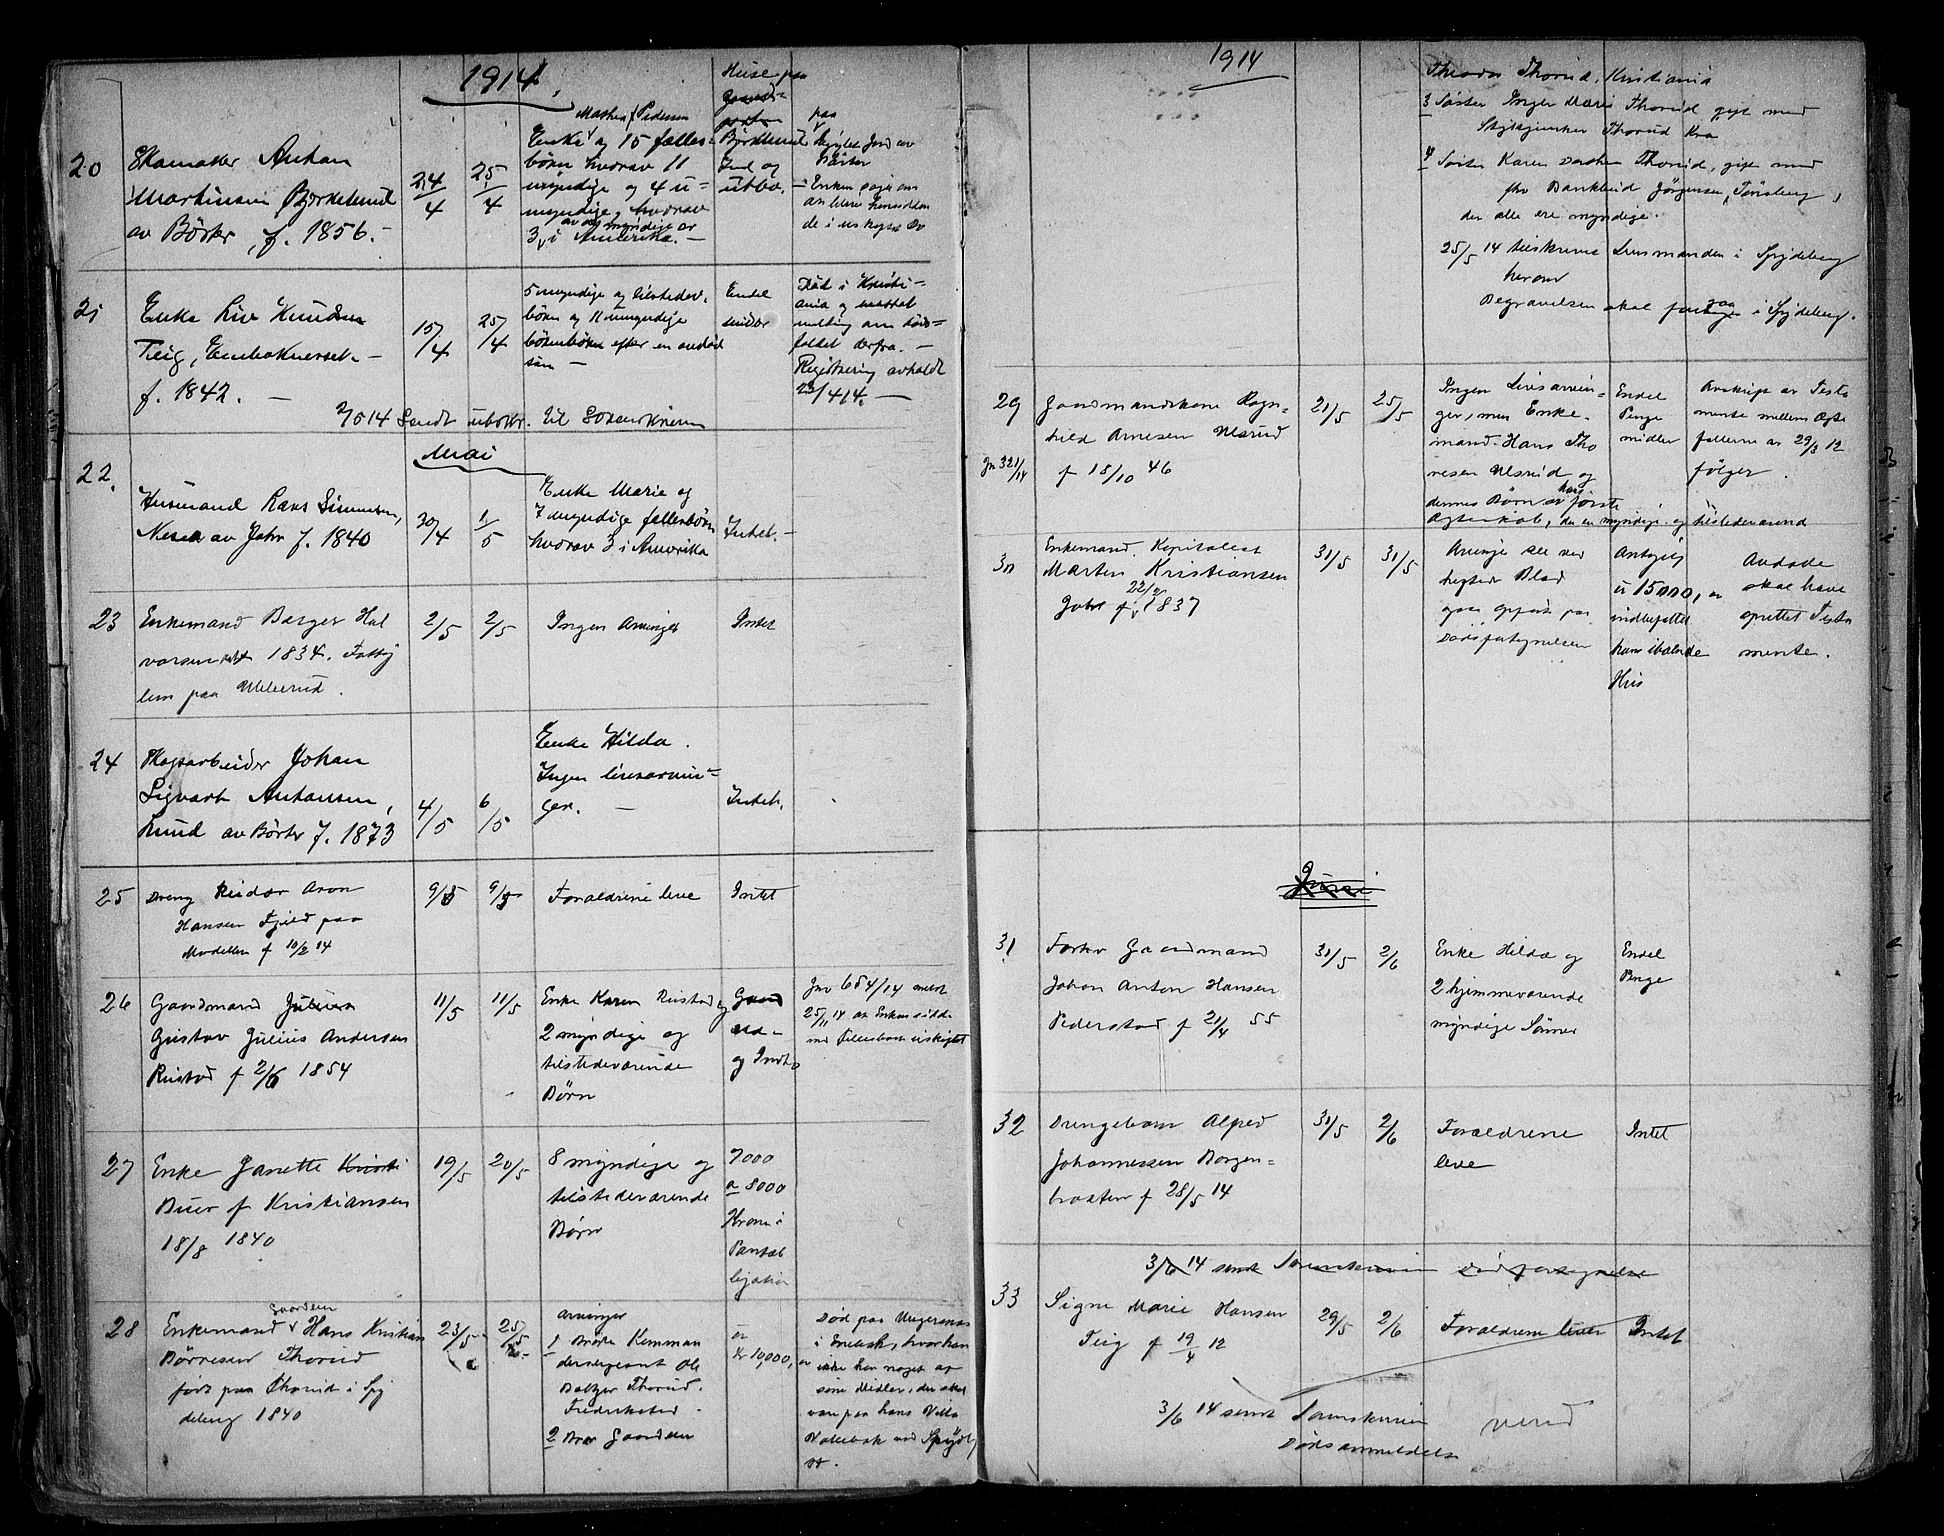 1914.
20
Skomaker Anton
Martinsen Bjerkelund
av Börter, f. 1856. -
24/4
25/4
Mathea Pedersen
Enke og 15 fælles-
börn hvorav 11
myndige og 4 u-
myndige, hvorav
av de myndige er
3 i Amerika. -
Huse paa
Bjerkelund
Ind og
utbo.
paa
bygslet Jord av
Börter
- Enken sager om
at bli hensidden-
de i uskiftet Bo
21
Enke Liv Knudsen
Teig, Enebakneset. -
f. 1842. -
15/4
25/4
5 myndige og tilstedev.
börn og umyndige
börnebörn efter en avdöd
sön -
Endel
midler
Död i Kristi-
ania og mottat
melding om döds-
faldet derfra. -
Registrering avholdt
23/4 14. -
2/5 14 Sendt utskr. til Sorenskriveren
Mai
22.
Husmand Lars Simensen,
Nesea av Jahr f. 1840
30/4
1/5
Enke Marie og
7 myndige fællesbörn
hvorav 3 i Amerika
Intet. -
23
Enkemand Barger Hal
vorsen födt 1834. Fattig
lem paa Ubberud.
2/5
2/5
Ingen Arvinger
Intet
24
Skogsarbeider Johan
Sigvart Antonsen,
Lund av Börter f. 1873
4/5
6/5
Enke Hilda.
Ingen livsarvin-
ger. -
Intet.
25
Dreng Reidar Aron
Hansen Fjeld paa
Modellen f 10/2 14
9/5
9/5
Forældrene leve
Intet
26
Gaardmand Julius
Gustav Julius Andersen
Rustad f 2/6 1854
11/5
11/5
Enke Karen Rustad og
2 myndige og
tilstedeværende
Börn
Gaard
ud-
og Indbo
Jnr 654/14 meldt
25/11 14 at Enken sidder
med Fællesboet uskiftet
27
Enke Janette Kristi
Buer f Kristiansen
18/8 1840
19/5
20/5
8 myndige og
tilstedeværende
Börn
7000
a 8000
Kroner i
Pantob
ligation
28
Enkemand Gaardeier Hans Kristian
Börresen Thorud
födt paa Thorud i Spy
deberg 1840
23/5
25/5
Arvinger
1 Broder Komman
dersergeant Ole
Baltzer Thorud.
Fredrikstad.
2 Bror Gaardeier
-
er
Kr 10,000,
Död paa Ungersnes
i Enebak, hvor han
ikke har noget af
sine Midler, der skal
være paa hans Villa
ved Spydeb
1914
Theodor Thorud, Kristiania
3 Söster Inger Marie Thorud gift med
Thorud Kra
4 Söster Karen Dorthea Thorud, gift med
fhv Bankbud Jörgensen, Tönsberg,
der alle ere myndige.
25/5 14 tilskrevet Lensmanden i Spydeberg
herom
Begravelsen skal foregaa i Spydeberg.
29
Jn 321/14
Gaardmandskone Ragn-
hild Arnesen Ulsrud
f 18/10 46
21/5
25/5
Ingen Livsarvin-
ger, men Enke-
mand Hans Tho
resen Ulsrud og
dennes Börn av hans förste
Ægteskab, der er myndige og tilstedeværend
Endel
Penge
midler
Avskrift av Testa
mente mellem Ægte
fællerne av 29/3 12
fölger.
30
Enkemand. Kapitalist
Martin Kristiansen
Jahr f. 22/2 1837
31/5
31/5
Arvinge se ved
heftet Blad
opfört paa
Dödsfaldsanmeldelsen
Antagelig
15000, er
indbefattet
hans iboende
Hus
Avdöde
skal have
oprettet Testa
mente.
Juni
31
Forhv Gaardmand
Johan Anton Hansen
Pederstad f 21/4 55
31/5
2/6
Enke Hilda og
2 hjemmeværende
myndige Sönner
Endel
Penge
32
Drengebarn Alfred
Johannessen Borgen-
braaten f 28/5 14
31/5
2/6
Forældrene
leve
Intet
3/6 14 sendt Sorenskriveren
33
Signe Marie Hansen
Teig f 19/4 12
29/5
2/6
Forældrene lever
Intet
3/6 14 sendt Sorenskriveren
Dödsanmeldelse